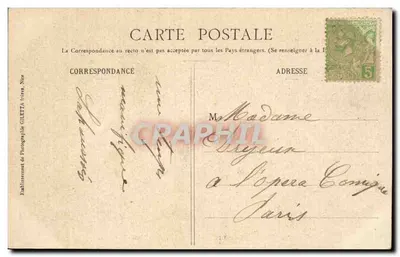 CARTE POSTALE
La Correspondance au recto n'est pas acceptée par tous les Pays étrangers. (Se renseigner à la
CORRESPONDANCE
ADRESSE
Etablissement de Photographie GILETTA frères, Nice
un temps
magnifique
5
M Madame
à l'Opera Comique
Paris
CPAPHIL